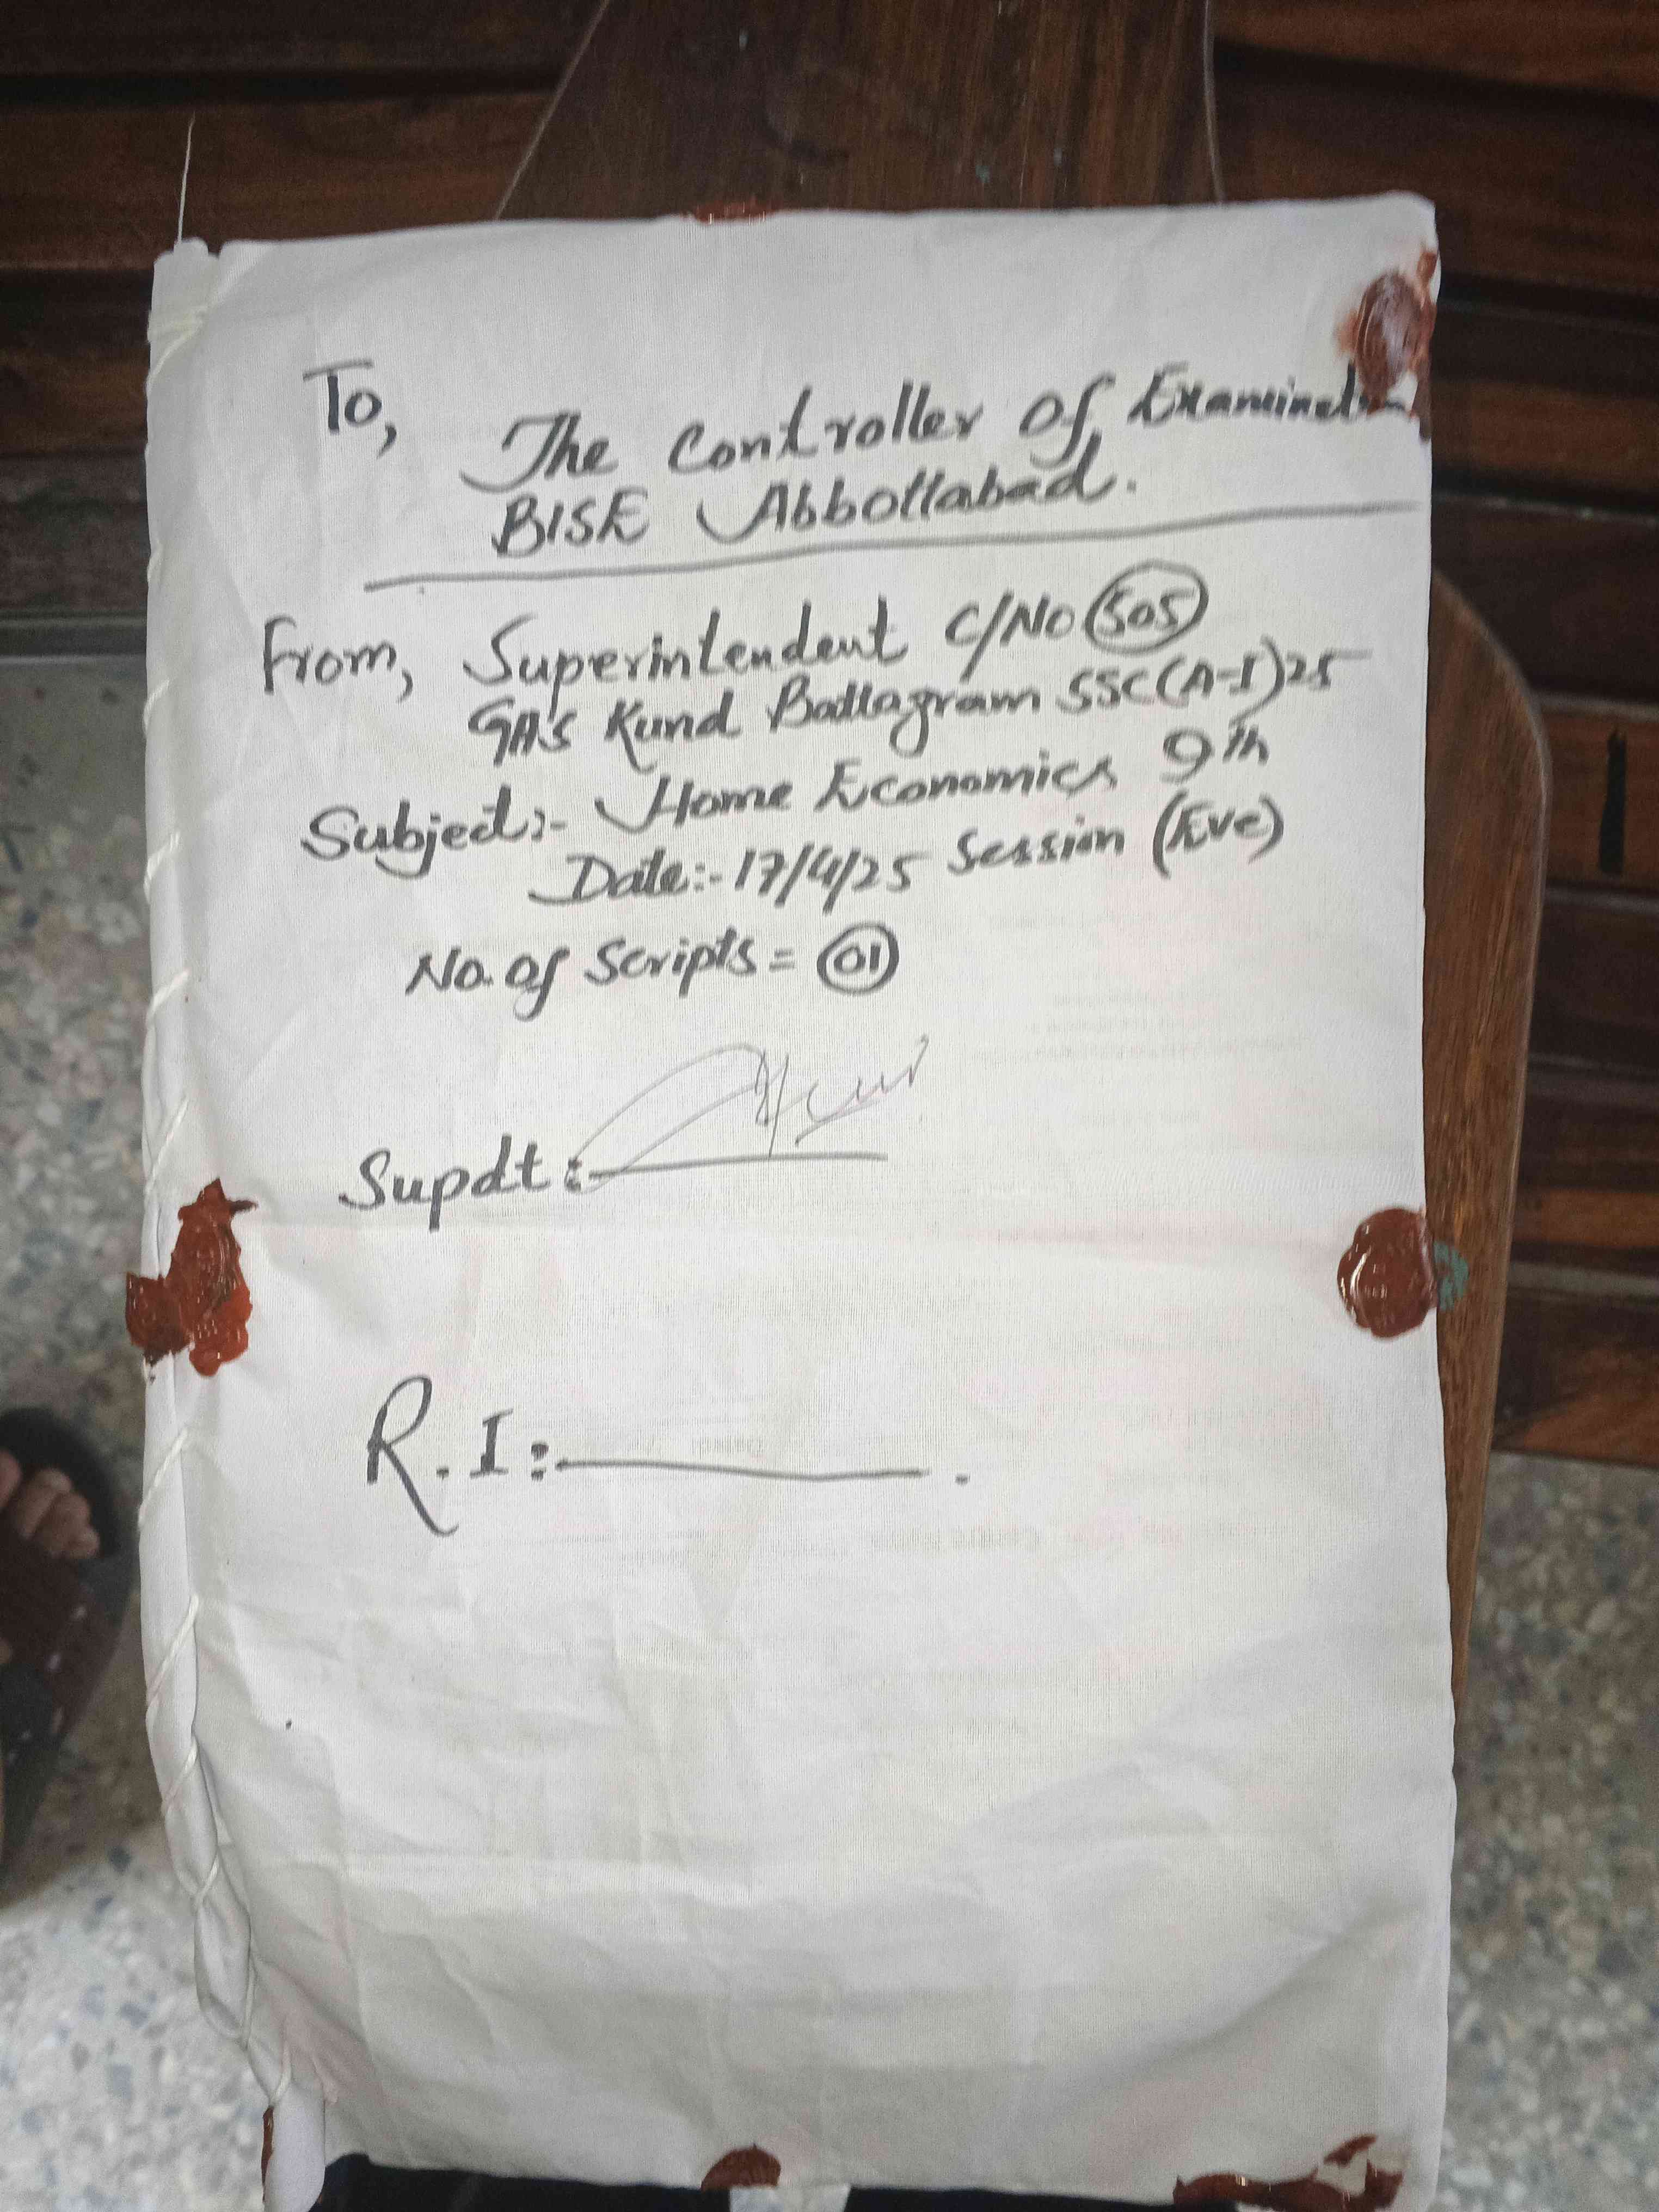 To,
The Controller Of Examination
BISE Abbottabad.
From, Superintendent C/No 505
GHS Kund Battagram SSC(A-I)25
Subject:- Home Economics 9th
Date:- 17/4/25 Session (Eve)
No. of Scripts = 01
Supdt:-
R.I:-